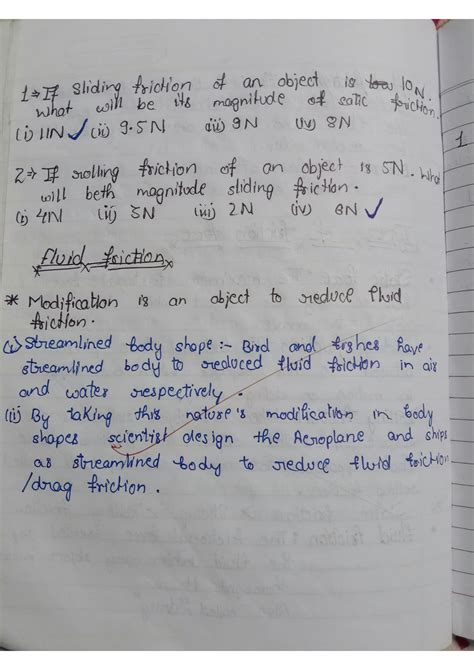 1⇒ If Sliding friction of an object is 10N.
What will be its magnitude of satic friction.
(i) 11N ✓ (ii) 9.5N (iii) 9N (iv) 8N
2⇒ If rolling friction of an object is 5N. What
will beth magnitude sliding friction.
(i) 4N (ii) 5N (iii) 2N (iv) 8N ✓
fluid friction
* Modification is an object to reduce fluid
friction.
(i) Streamlined body shape :- Bird and fishes have
streamlined body to reduced fluid friction in air
and water respectively.
(ii) By taking this nature's modification in body
shapes scientist design the Aeroplane and ships
as streamlined body to reduce fluid friction
/drag friction.
1